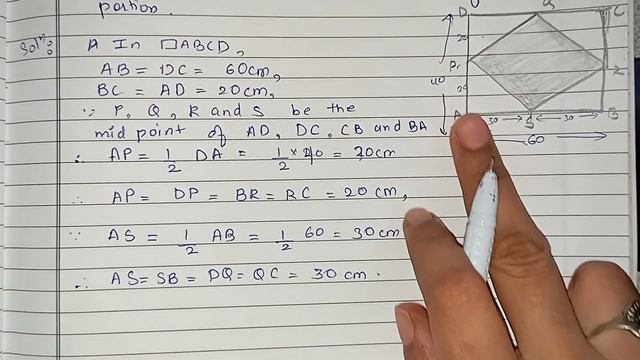 portion.
Soln:
A In □ABCD,
AB = DC = 60cm,
BC = AD = 20cm,
∵ P, Q, R and S be the
mid point of AD, DC, CB and BA
∴ AP = 1/2 DA = 1/2 × 40 = 20cm
∴ AP = DP = BR = RC = 20 cm,
∵ AS = 1/2 AB = 1/2 60 = 30 cm
∴ AS = SB = DQ = QC = 30 cm.
D Q C
20
P R
40
20
A S B
30 30
60